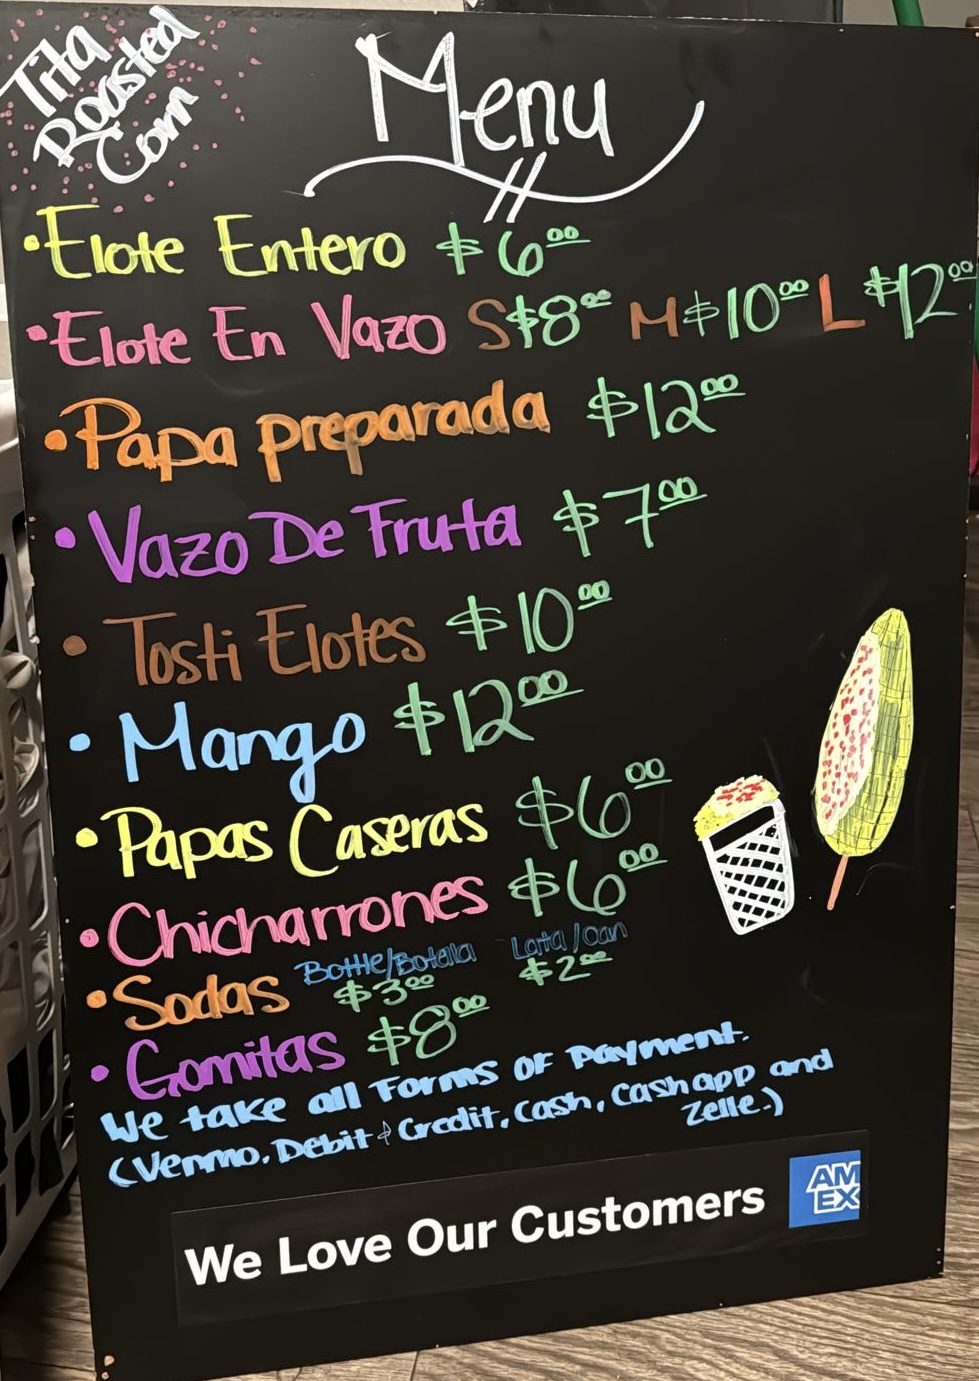 Tita
Roasted
Corn
Menu
• Elote Entero $6.00
• Elote En Vazo S $8.00 M $10.00 L $12.00
• Papa preparada $12.00
• Vazo De Fruta $7.00
• Tosti Elotes $10.00
• Mango $12.00
• Papas Caseras $6.00
• Chicharrones $6.00
• Sodas Bottle/Botella $3.00 Lata/can $2.00
• Gomitas $8.00
We take all Forms of Payment.
(Venmo. Debit & Credit, Cash, Cash app and
Zelle.)
We Love Our Customers
AM
EX